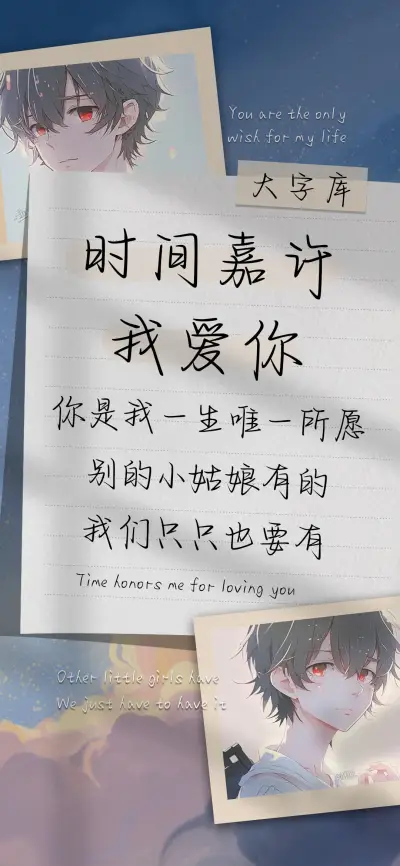 You are the only
wish for my life
大字库
时间嘉许
我爱你
你是我一生唯一所愿
别的小姑娘有的
我们只只也要有
Time honors me for loving you
Other little girls have
We just have to have it